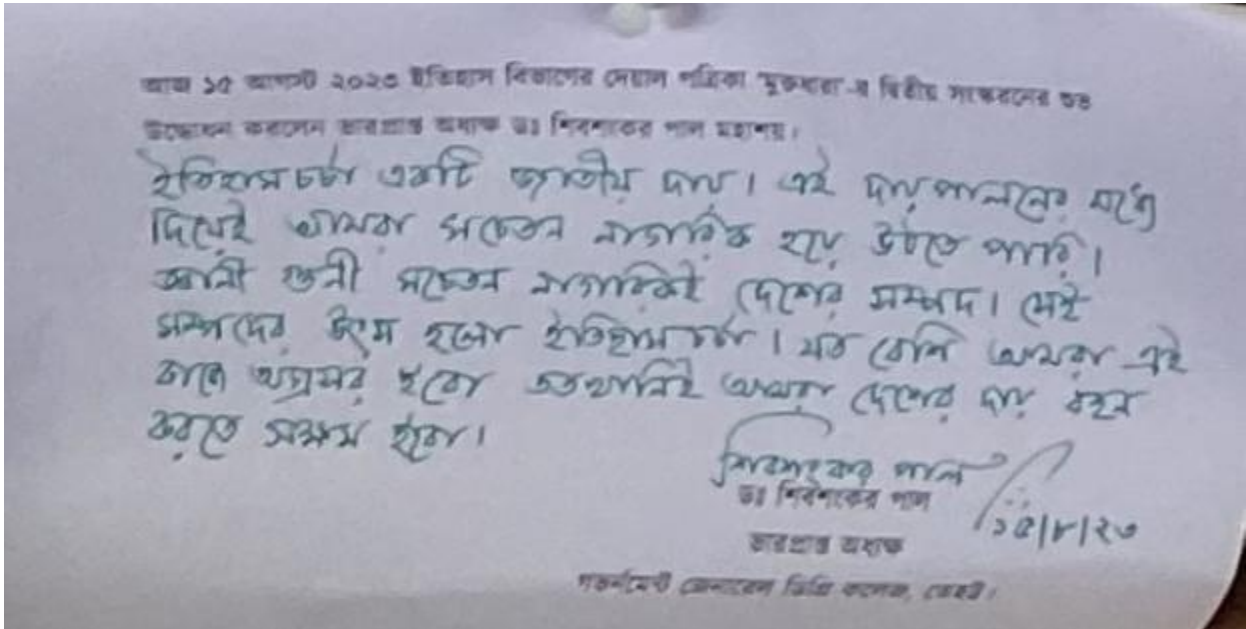 আজ ১৫ আগস্ট ২০২৩ ইতিহাস বিভাগের দেয়াল পত্রিকা 'মুক্তধারা'-র দ্বিতীয় সংস্করনের শুভ
উদ্বোধন করলেন ভারপ্রাপ্ত অধ্যক্ষ ডঃ শিবশংকর পাল মহাশয়।
ইতিহাস চর্চা একটি জাতীয় দায়। এই দায় পালনের মধ্যে
দিয়েই আমরা সচেতন নাগরিক হয়ে উঠতে পারি।
জ্ঞানী গুনী সচেতন নাগরিকই দেশের সম্পদ। সেই
সম্পদের উৎস হলো ইতিহাস চর্চা। যত বেশি আমরা এই
কাজে অগ্রসর হবো ততখানিই আমরা দেশের দায় বহন
করতে সক্ষম হবো।
শিবশংকর পাল
১৫/৮/২৩
ডঃ শিবশংকর পাল
ভারপ্রাপ্ত অধ্যক্ষ
গভর্নমেন্ট জেনারেল ডিগ্রি কলেজ,